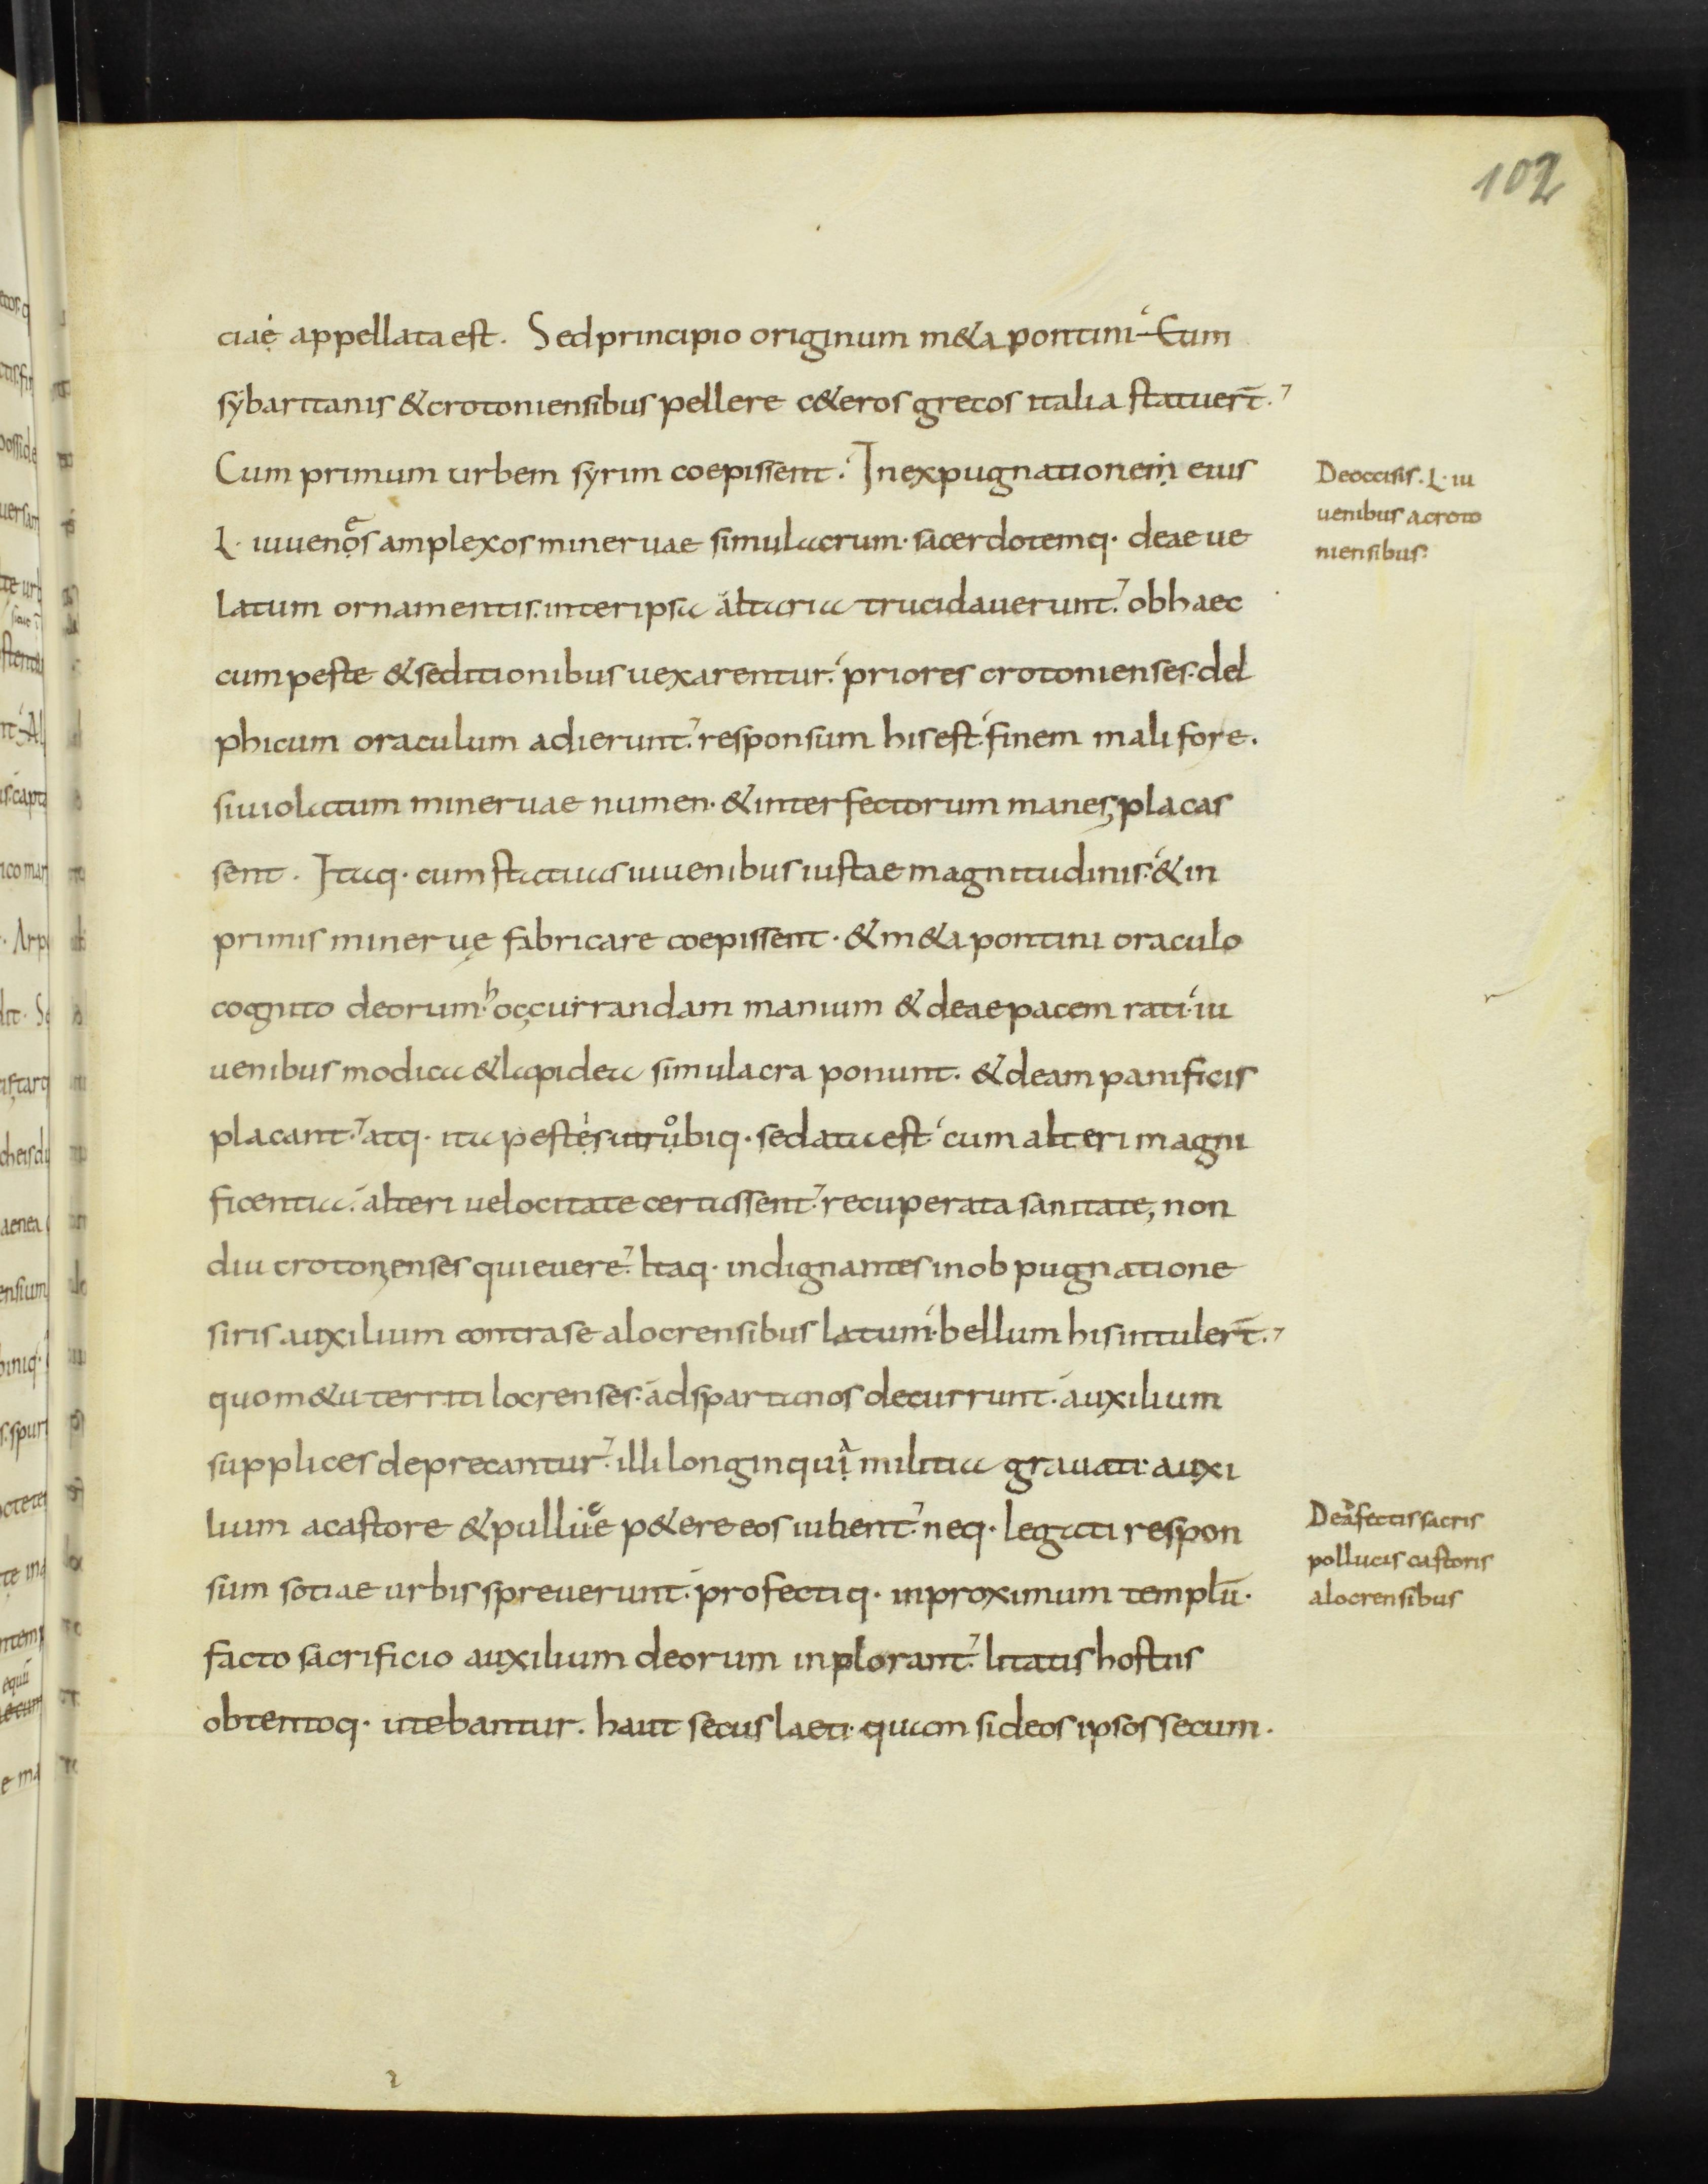 102
ciae appellata est. Sed principio originum m&apontini Cum
sybaritanis & crotoniensibus pellere c&eros grecos italia statuert̄.
Cum primum urbem syrim coepissent. In expugnationem eius
L. iuuenes amplexos mineruae simulacrum. sacerdotemq. deae ue
latum ornamentis. inter ipsa altaria trucidauerunt. ob haec
cum peste & seditionibus uexarentur. priores crotonienses. del
phicum oraculum adierunt. responsum his est. finem mali fore.
si uiolatum mineruae numen. & interfectorum manes placas
sent. Itaq. cum statuas iuuenibus iustae magnitudinis. & in
primis mineruę fabricare coepissent. & m&apontini oraculo
cognito deorum. occurrandam manium & deae pacem rati. iu
uenibus modica & lapidea simulacra ponunt. & deam panificis
placant. atq. ita pestis utrobiq. sedata est. cum alteri magni
ficentia. alteri uelocitate certassent. recuperata sanitate, non
diu crotonenses quieuere. Itaq. indignantes in obpugnatione
siris auxilium contra se a locrensibus latum. bellum his intulert̄.
quo m&u territi locrenses. ad spartanos decurrunt. auxilium
supplices deprecantur. illi longinqua militia grauati. auxi
lium a castore & polluce p&ere eos iubent. neq. legati respon
sum sotiae urbis spreuerunt. profectiq. in proximum templū.
facto sacrificio auxilium deorum inplorant. litatis hostiis
obtentoq. utebantur. haut secus laeti. quam si deos ipsos secum.
De occisis. L. iu
uenibus a croto
niensibus.
De affectis sacris
pollucis castoris
a locrensibus